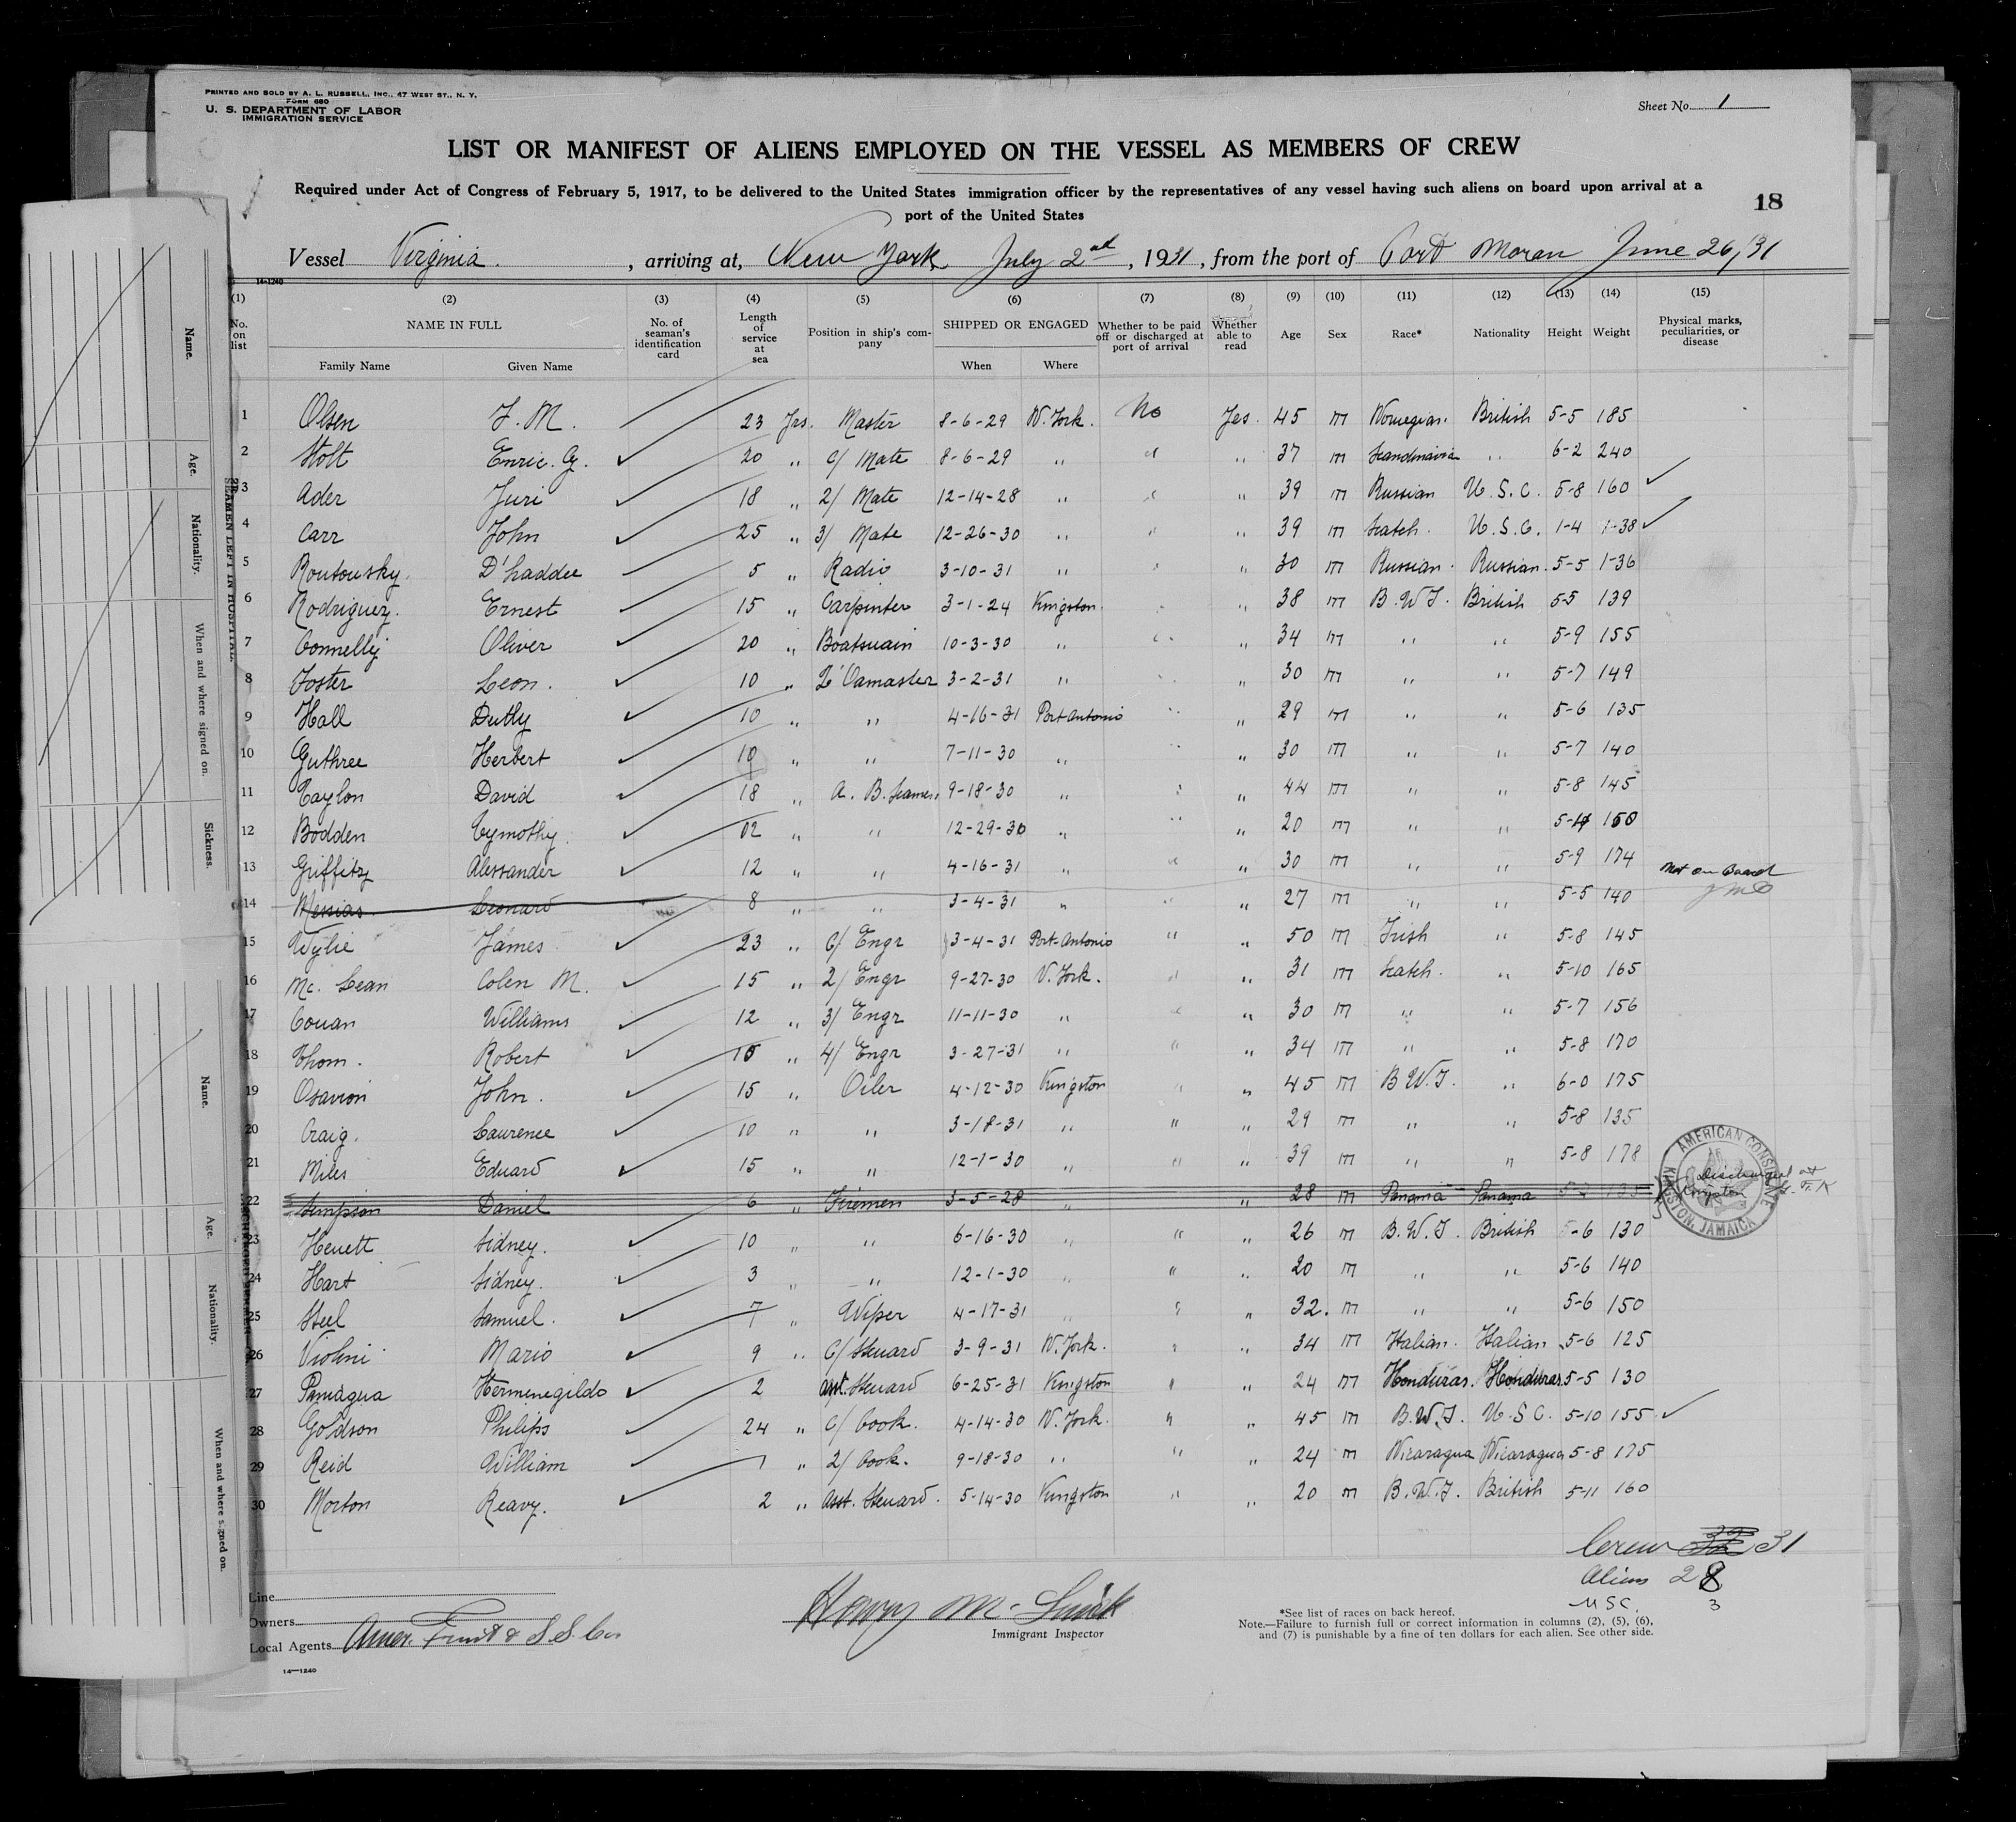 PRINTED AND SOLD BY A. L. RUSSELL, INC., 47 WEST ST., N. Y.
FORM 680
U. S. DEPARTMENT OF LABOR
IMMIGRATION SERVICE
Sheet No. 1
LIST OR MANIFEST OF ALIENS EMPLOYED ON THE VESSEL AS MEMBERS OF CREW
Required under Act of Congress of February 5, 1917, to be delivered to the United States immigration officer by the representatives of any vessel having such aliens on board upon arrival at a
port of the United States
18
Vessel Virginia, arriving at, New York July 2nd, 1931, from the port of Port Moran June 26/31
14-1240
(1) (2) (3) (4) (5) (6) (7) (8) (9) (10) (11) (12) (13) (14) (15)
No. on list NAME IN FULL Family Name Given Name No. of seaman's identification card Length of service at sea Position in ship's company SHIPPED OR ENGAGED When Where Whether to be paid off or discharged at port of arrival Whether able to read Age Sex Race* Nationality Height Weight Physical marks, peculiarities, or disease
1 Olsen J. M. 23 Yrs. Master 8-6-29 N. York. No Yes. 45 m Norwegian. British 5-5 185
2 Stolt Enric. G. 20 " C/ Mate 8-6-29 " " " 37 m Scandinavian " 6-2 240
3 Ader Juri 18 " 2/ Mate 12-14-28 " " " 39 m Russian U. S. C. 5-8 160
4 Carr John 25 " 3/ Mate 12-26-30 " " " 39 m Scotch. U. S. C. 1-4 1-38
5 Routousky. D'haddee 5 " Radio 3-10-31 " " " 30 m Russian. Russian. 5-5 1-36
6 Rodriguez. Ernest 15 " Carpenter 3-1-24 Kingston. " " 38 m B. W I. British 5-5 139
7 Connelly Oliver 20 " Boatsuain 10-3-30 " " " 34 m " " 5-9 155
8 Foster Leon. 10 " Q'Oamaster 3-2-31 " " " 30 m " " 5-7 149
9 Hall Dutly 10 " " 4-16-31 Port Antonio " " 29 m " " 5-6 135
10 Guthree Herbert 10 " " 7-11-30 " " " 30 m " " 5-7 140
11 Taylon David 18 " A. B. Seamen 9-18-30 " " " 44 m " " 5-8 145
12 Bodden Tymothy. 02 " " 12-29-30 " " " 20 m " " 5-4 150
13 Griffitz Alessander 12 " " 4-16-31 " " " 30 m " " 5-9 174
14 Messias Leonard 8 " " 3-4-31 " " " 27 m " " 5-5 140 Not on Board
15 Wylie James 23 " C/ Engr 3-4-31 Port-Antonio " " 50 m Irish " 5-8 145
16 Mc. Lean Colen M. 15 " 2/ Engr 9-27-30 N. York. " " 31 m Scotch. " 5-10 165
17 Couan Williams 12 " 3/ Engr 11-11-30 " " " 30 m " " 5-7 156
18 Thom. Robert 15 " 4/ Engr 3-27-31 " " " 34 m " " 5-8 170
19 Osavion John. 15 " Oiler 4-12-30 Kingston " " 45 m B W. I. " 6-0 175
20 Craig. Laurence 10 " " 3-18-31 " " " 29 m " " 5-8 135
21 Miles Eduard 15 " " 12-1-30 " " " 39 m " " 5-8 178
22 Simpson Daniel 6 " Firemen 3-5-28 " " 28 m Panama Panama 5-7 135 Discharged at Kingston
AMERICAN CONSULATE
KINGSTON, JAMAICA
23 Heuett Sidney. 10 " " 6-16-30 " " " 26 m B. W. I. British 5-6 130
24 Hart Sidney. 3 " " 12-1-30 " " " 20 m " " 5-6 140
25 Steel Samuel. 7 " Wiper 4-17-31 " " " 32. m " " 5-6 150
26 Violini Mario 9 " C/ Steuard 3-9-31 N. York. " " 34 m Italian. Italian 5-6 125
27 Pamagua Hermenegildo 2 " asst. Steuard 6-25-31 Kingston " " 24 m Honduras. Honduras. 5-5 130
28 Goldson Philips 24 " C/ Cook. 4-14-30 N. York. " " 45 m B. W. I. U. S C. 5-10 155
29 Reid William 7 " 2/ Cook. 9-18-30 " " " 24 m Nicaragua Nicaragua 5-8 175
30 Morton Reavy. 2 " Asst. Steuard. 5-14-30 Kingston " " 20 m B. W. I. British 5-11 160
Crew 31
Aliens 28
USC. 3
Line
Owners
Local Agents Amer. Fruit & S. S. Co
Immigrant Inspector
*See list of races on back hereof.
Note.—Failure to furnish full or correct information in columns (2), (5), (6),
and (7) is punishable by a fine of ten dollars for each alien. See other side.
14—1240
Name.
Age.
Nationality.
When and where signed on.
Sickness.
SEAMEN LEFT IN HOSPITAL.
Name.
Age.
Nationality.
When and where signed on.